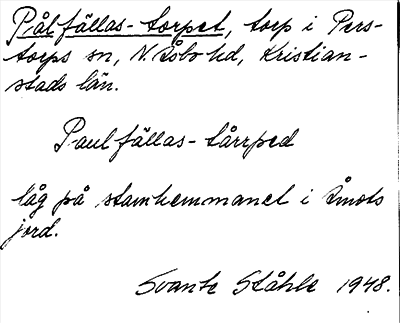 Pål fällas-torpet, torp i Pers-
torps sn, N. Åsbo hd, Kristian-
stads län.
Paul fällas-tårrped
låg på stamhemmanet i Åmots
jord.
Svante Ståhle 1948.